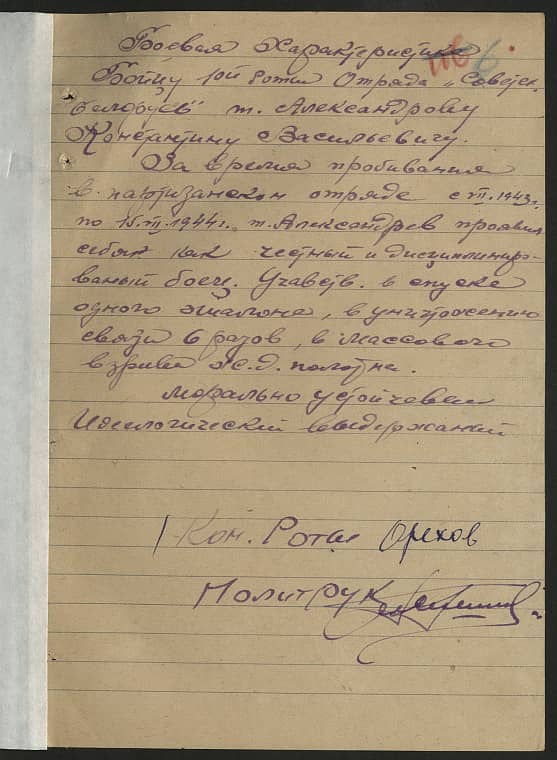 Боевая Характеристика
Бойцу 1ой Роты Отряда „Советск.
Белорусь" т. Александрову
Константину Васильевичу.
За время пробивания
в партизанском отряде с VII. 1943г.
по 15.III.1944г. т. Александров проявил
себя как честный и дисциплиниро-
ваный боец. Учавств. в спуске
одного эшалона, в уничтожению
связи 6 разов, в массового
взрыва ж.д. полотна.
Морально устойчевый
Идиологический выдержаний
Ком. Роты Орехов
Политрук